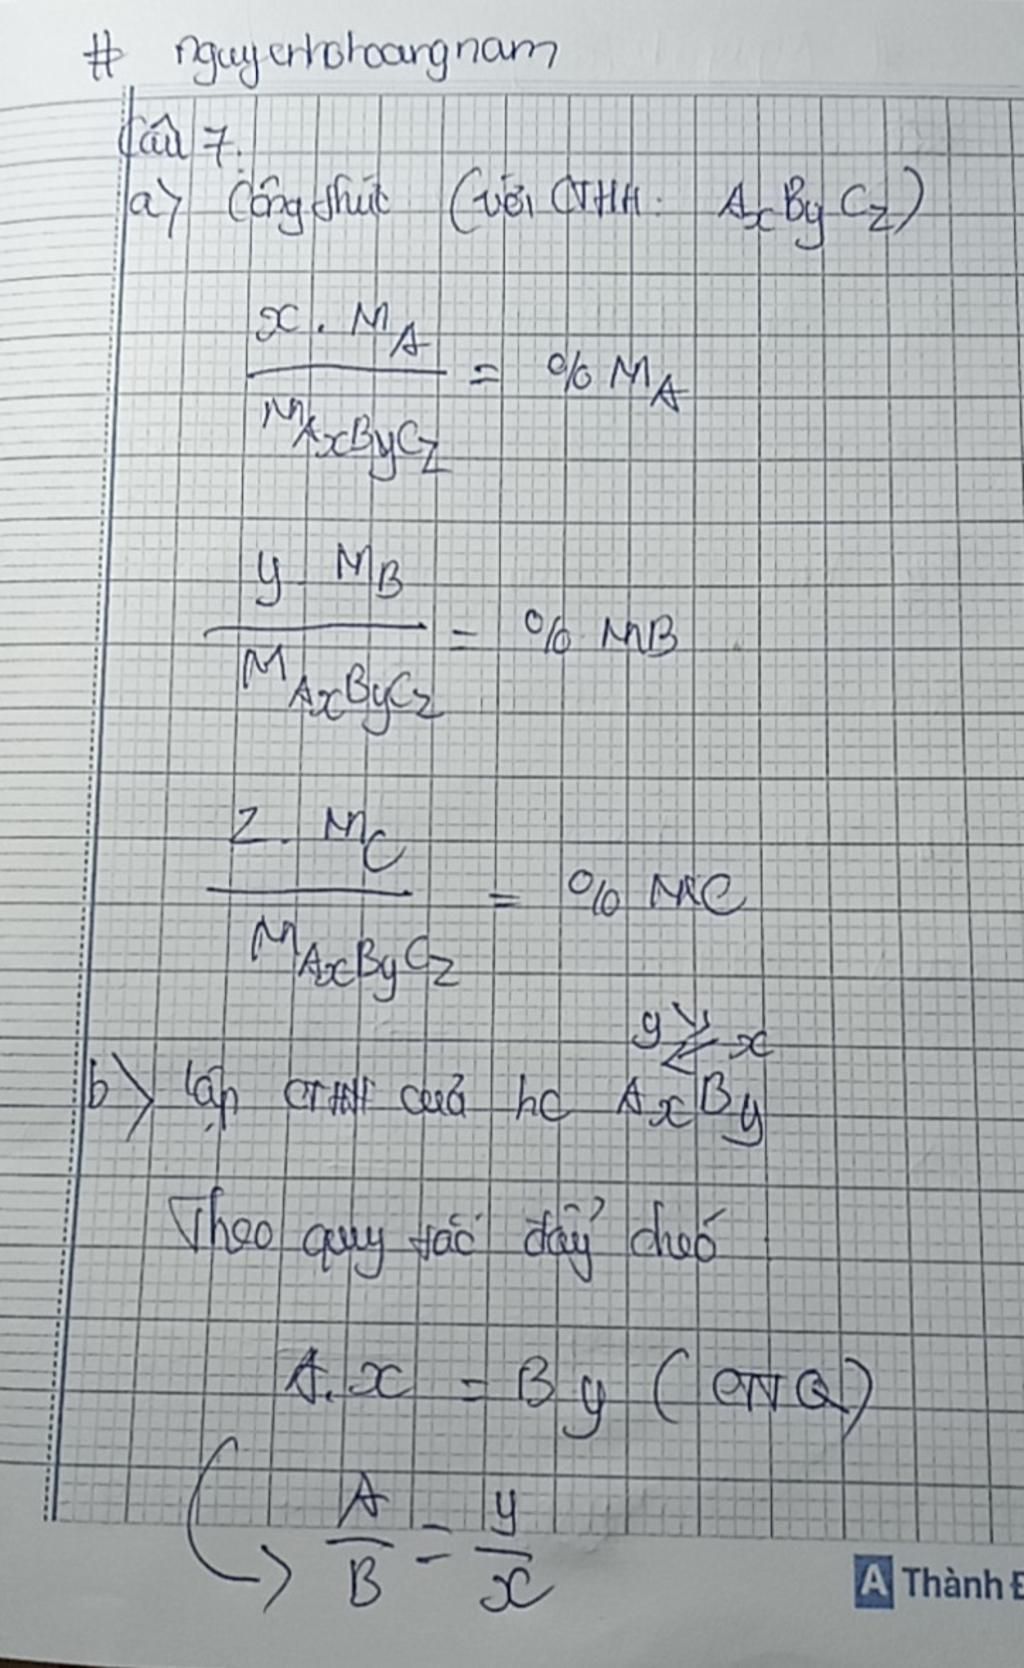 # nguyenhohoangnam
Câu 7.
a) Công thức (với CTHH: AxByCz)
x . MA
= % MA
MAxByCz
y . MB
= % MB
MAxByCz
z . MC
= % MC
MAxByCz
y x
b) Lập CTHH của hc AxBy
Theo quy tắc đẩy chéo
A.x = B y (CTVQ)
A = y
B x
A Thành Đ